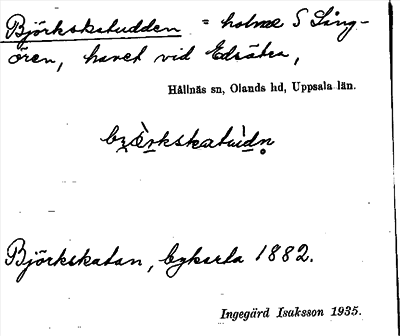 Björkskatudden = holme S Lång-
ören, havet vid Edsätra,
Hållnäs sn, Olands hd, Uppsala län.
Björkskatan, bykarta 1882.
Ingegärd Isaksson 1935.